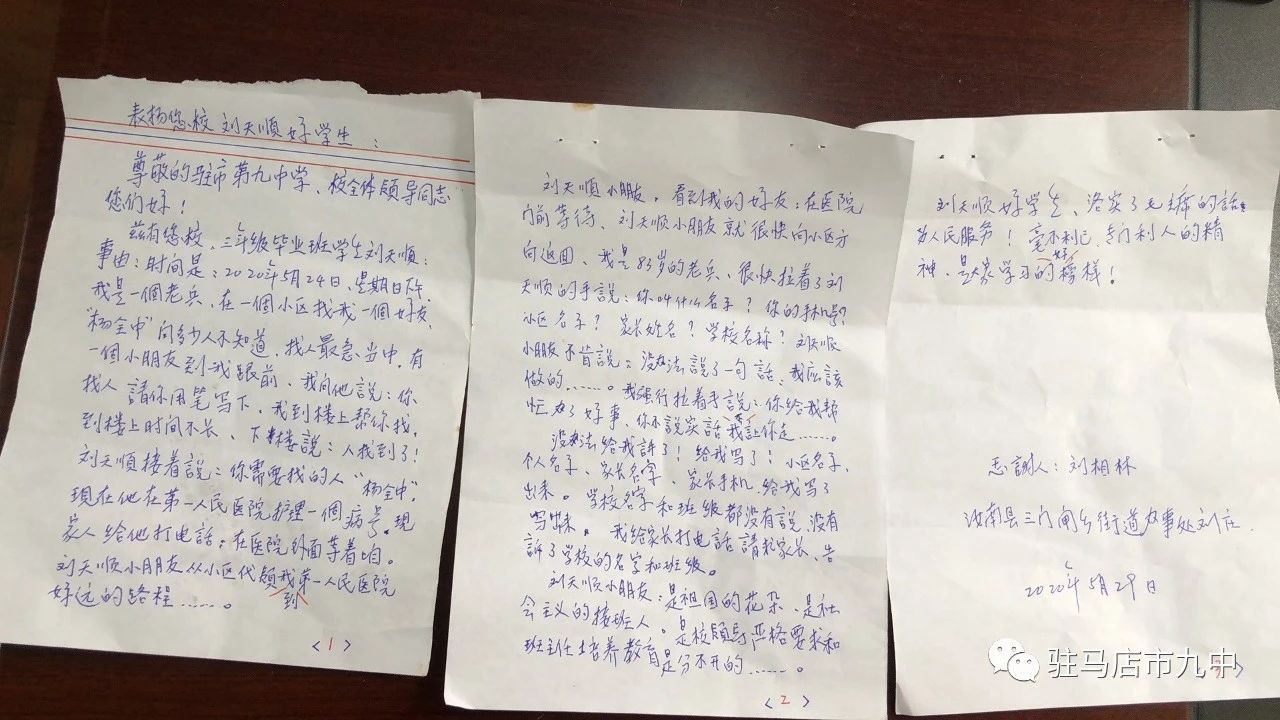 表扬您校刘天顺好学生：
尊敬的驻市第九中学、校全体领导同志
您们好！
兹有您校、三年级毕业班学生刘天順：
事由：时间是：2020年5月24日、星期日下午、
我是一個老兵、在一個小区找我一個好友、
“杨全中”问多少人不知道、找人最急当中、有
一個小朋友到我跟前、我问他説：你
找人請你用笔写下、我到楼上帮你找、
到楼上时间不长、下楼説：人找到了！
刘天順接着説：你需要找的人“杨全中”、
現在他在第一人民医院护理一個病号。現
家人给他打电話；在医院外面等着咱。
刘天順小朋友从小区代领我到第一人民医院
好远的路程……。
<1>
刘天順小朋友、看到我的好友；在医院
门前等待、刘天順小朋友就很快向小区方
向返回、我是83岁的老兵、很快拉着了刘
天順的手説：你叫什么名子？你的手机号？
小区名子？家长姓名？学校名称？刘天順
小朋友不肯説：没办法説了一句話、我应該
做的……。我强行拉着手説：你给我帮
忙办了好事、你不説实話我不让你走……。
没办法给我訴了！给我写了！小区名子、
个人名子、家长名字、家长手机、给我写了
出来。学校名字和班级都没有説、没有
写出来。我给家长打电話請求家长、告
訴了学校的名字和班级。
刘天順小朋友：是祖国的花朵、是社
会主义的接班人。是校領导严格要求和
班主任培养教育是分不开的……。
<2>
刘天順好学生、落实了毛主席的話：
为人民服务！毫不利己、专门利人的精
神、是大家学习的好榜样！
感謝人：刘相林
汝南县三门闸乡街道办事处刘庄
2020年5月29日
驻马店市九中